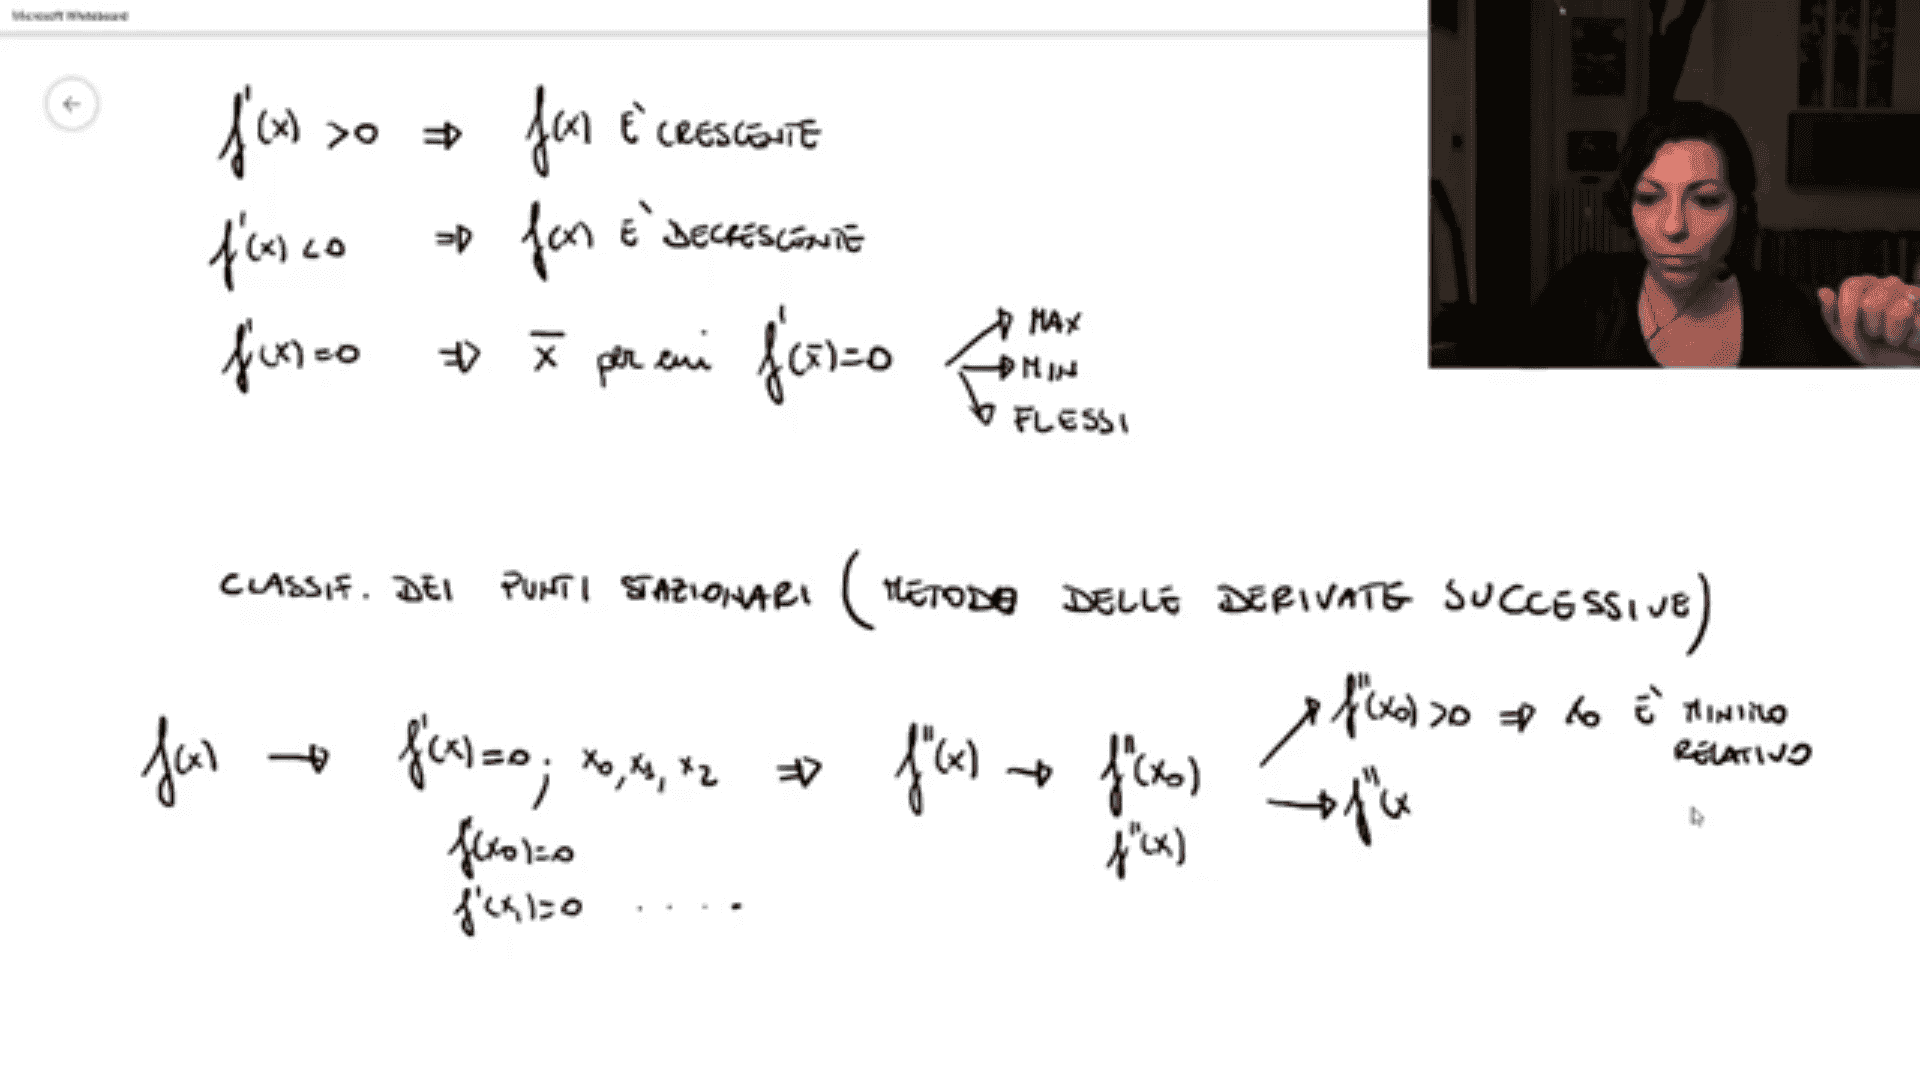 Microsoft Whiteboard
f'(x) >0 ⇒ f(x) È CRESCENTE
f'(x) <0 ⇒ f(x) È DECRESCENTE
f'(x)=0 ⇒ x̄ per cui f'(x̄)=0
MAX
MIN
FLESSI
CLASSIF. DEI PUNTI STAZIONARI (METODO DELLE DERIVATE SUCCESSIVE)
f(x) → f'(x)=0; x₀, x₁, x₂ ⇒ f''(x) → f''(x₀)
f''(x₀)>0 ⇒ x₀ È MINIMO
RELATIVO
f''(x
f(x₀)=0
f''(x)
f'(x₁)=0 . . . . .